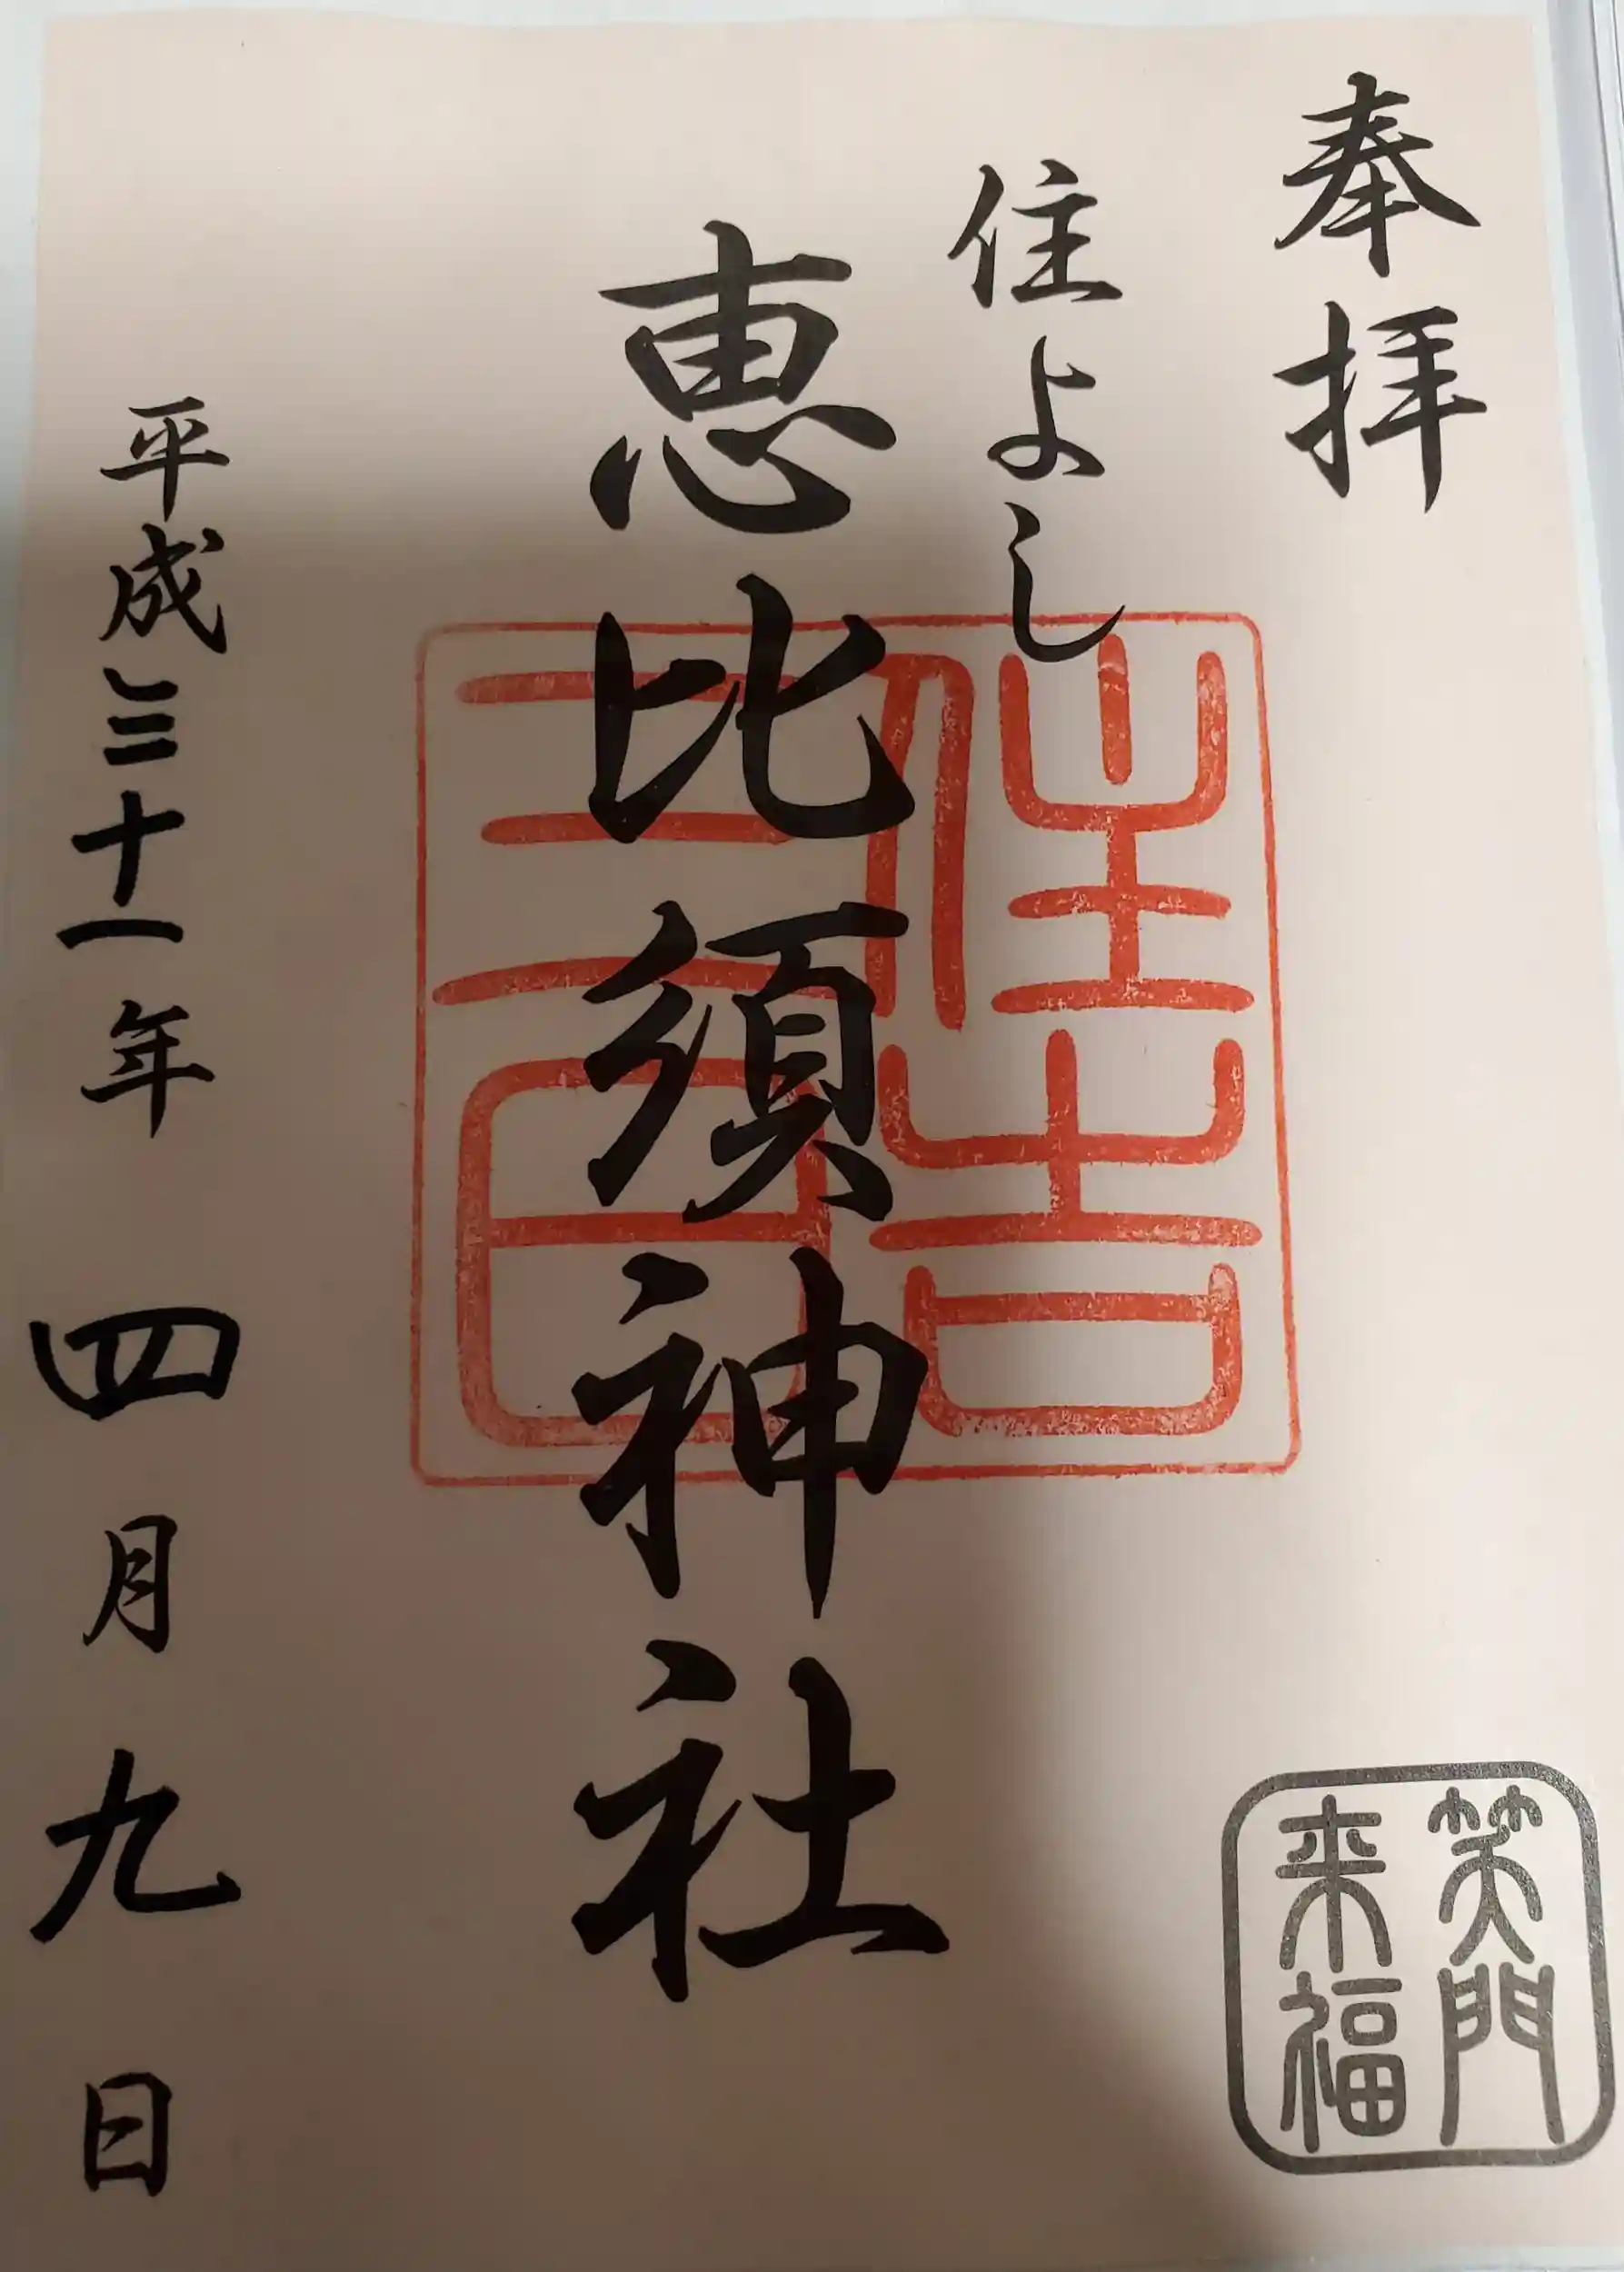 奉拝
住よし
恵比須神社
住吉
三宮
平成三十一年四月九日
笑門
来福